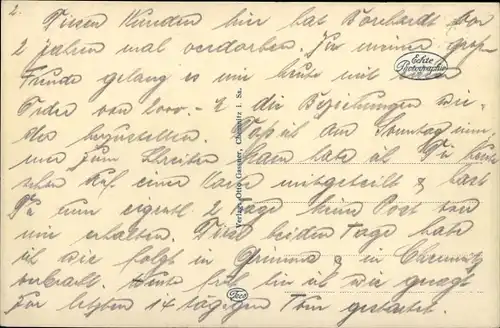 2.
Diesen Kunden hier hat Borchardt vor
2 Jahren mal verdorben. Zu meiner groß-
Freude gelang es mir heute mit einer
Order von 2000.- die Beziehungen wie-
der herzustellen. Daß ich am Sonntag nim-
mer zum Schreiben kam habe ich Dir heute
schon auf einer Karte mitgeteilt & hast
Du nun eigentl. 2 Tage keine Post von
mir erhalten. Diese beiden Tage habe
ich wie folgt in Grimma & in Chemnitz
verbracht. Heute früh bin ich wie gesagt
zur letzten 14 tägigen Tour gestartet.
Echte
Photographie
Verlag Otto Gasser, Chemnitz i. Sa.